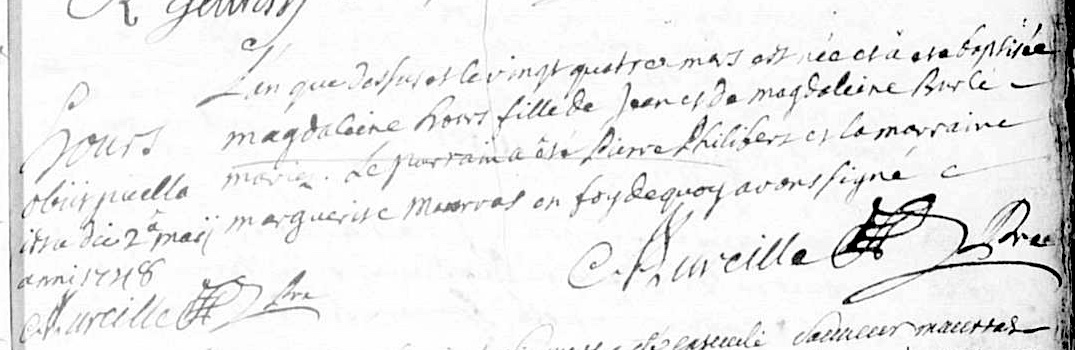 L'an que dessus et le vingt quatre mars est née et à été baptisée
magdaleine hours fille de Jean et de magdaleine Burle
mariez. Le parrain a été Pierre Philibert et la marraine
marguerite maurras en foy de quoy avons signé
Aureille Ptre
hours
obiit puella
ista die 2ª maij
anni 1748
Aureille Ptre
maurras